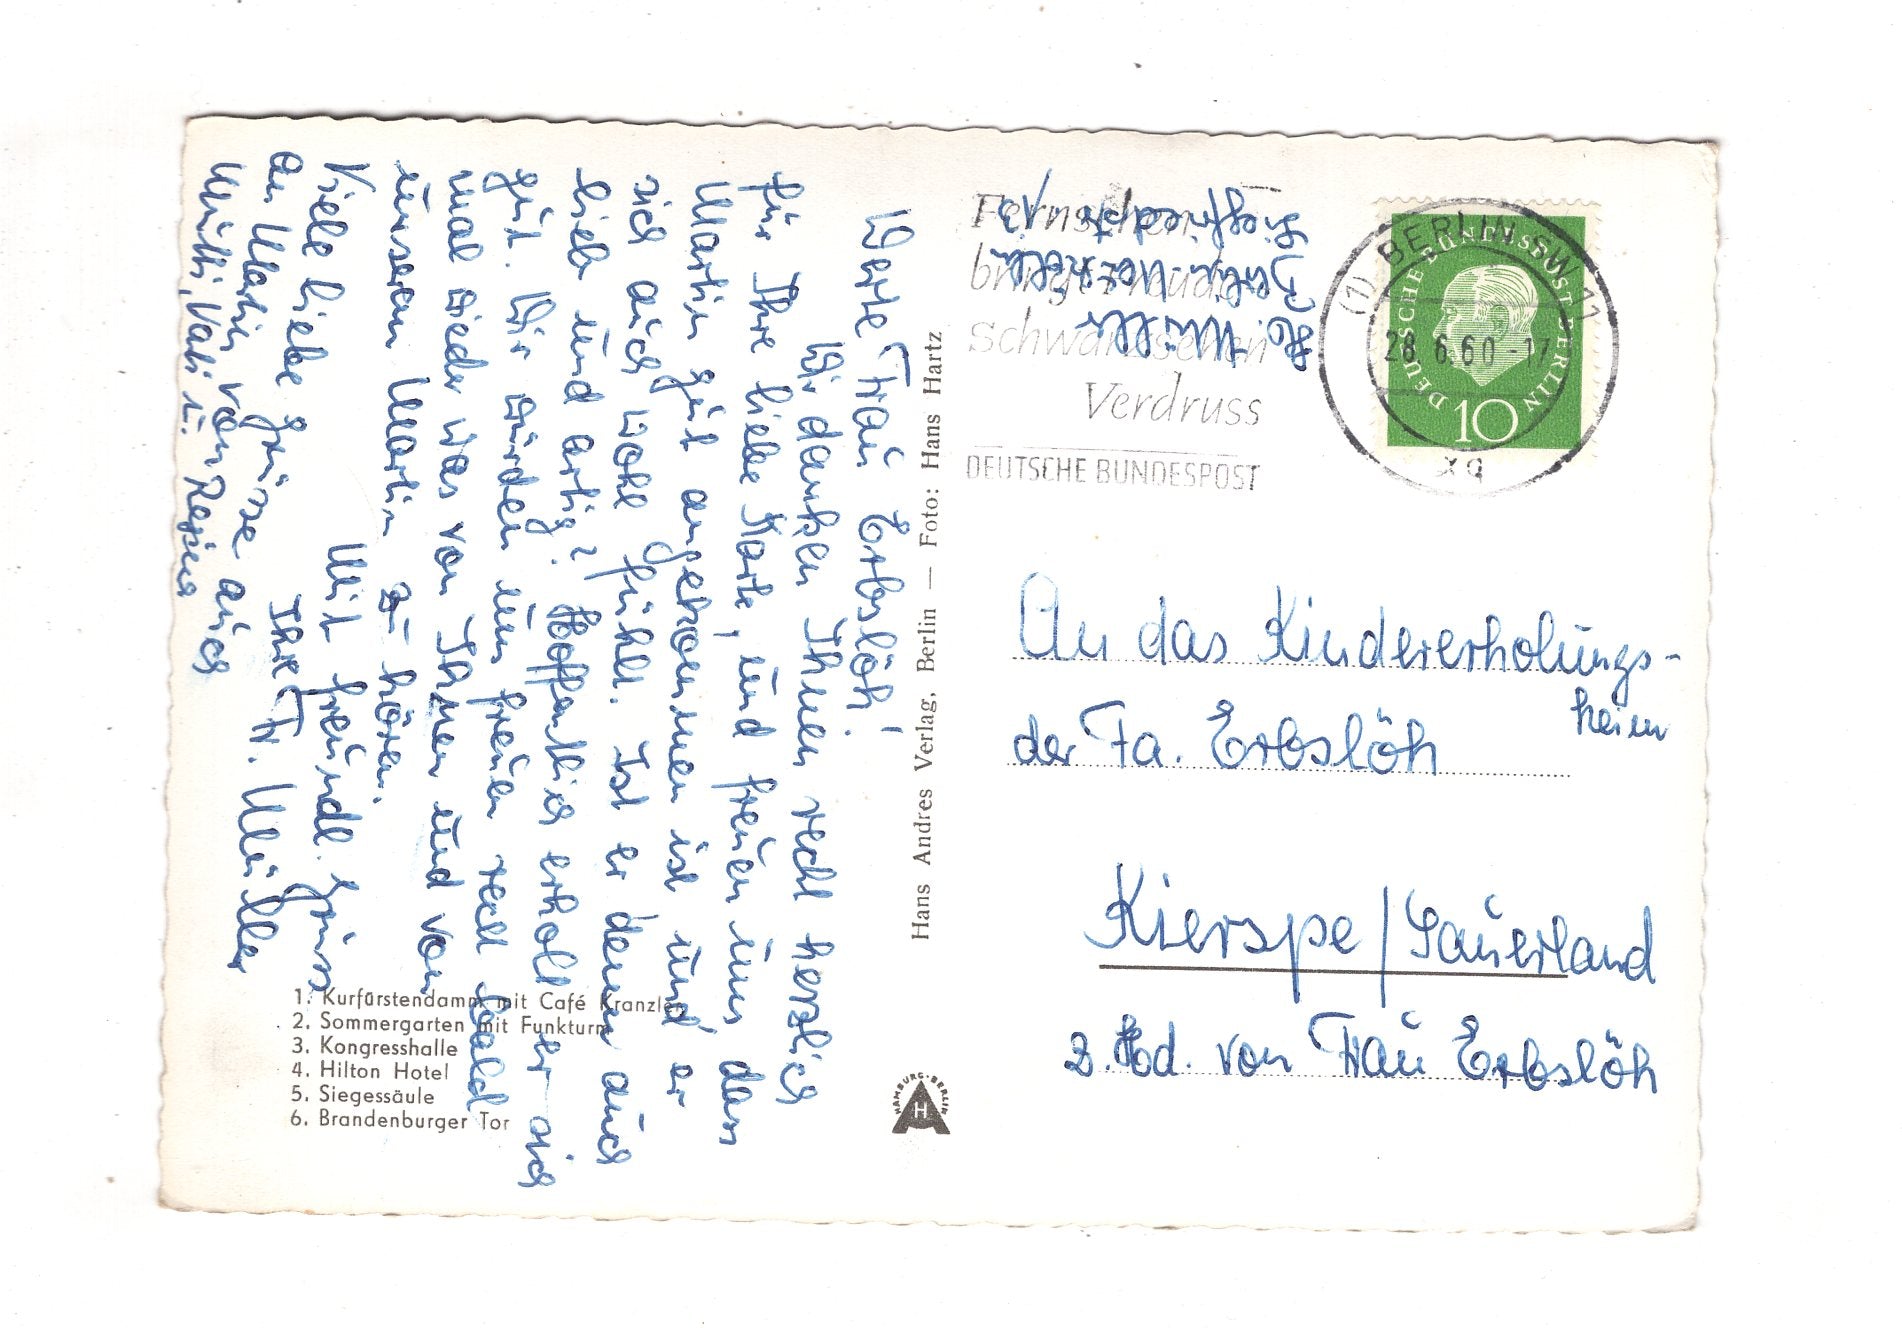 Werte Frau Erbslöh!
Wir danken Ihnen recht herzlich
für Ihre liebe Karte, und freuen uns dass
Martin gut angekommen ist und er
sich auch wohl fühlt. Ist er denn auch
lieb und artig? Hoffentlich erholt er sich
gut. Wir würden uns freuen recht bald
mal wieder was von Ihnen und von
unseren Martin zu hören.
Mit freundl. Gruss
Ihre Fr. Müller
Viele liebe Grüsse auch
an Martin von
Mutti, Vati u. Regina
1. Kurfürstendamm mit Café Kranzler
2. Sommergarten mit Funkturm
3. Kongresshalle
4. Hilton Hotel
5. Siegessäule
6. Brandenburger Tor
Hans Andres Verlag, Berlin — Foto: Hans Hartz
HAMBURG·BERLIN
H
H. Müller
Berlin-Neukölln
Siegfriedstr.
Fernsehen
bringt Freude
Schwarzsehen
Verdruss
DEUTSCHE BUNDESPOST
(1) BERLIN SW 11
28.6.60-17
xq
DEUTSCHE BUNDESPOST BERLIN
10
An das Kindererholungs-
heim
der Fa. Erbslöh
Kierspe/Sauerland
z. Hd. von Frau Erbslöh